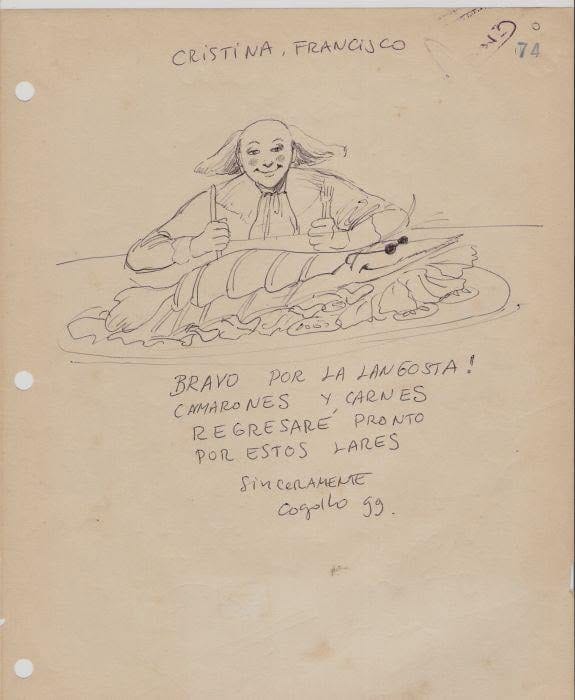 CRISTINA, FRANCISCO
74
BRAVO POR LA LANGOSTA!
CAMARONES Y CARNES
REGRESARÉ PRONTO
POR ESTOS LARES
SINCERAMENTE
Cogollo 99.